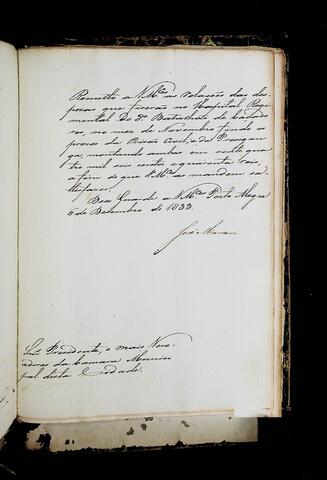 Remetto a V.Mces as relações das des-
pezas que fizerão no Hospital Regi-
mental do 3º Batalhão de Caçado
res, no mez de Novembro findo os
prezos da Prizão Civil, e da Presigan-
ga, montando ambas em vinte qua
tro mil seis centos e quarenta reis,
a fim de que V.Mces as mandem sa-
tisfazer.
Deos Guarde a V.Mces Porto Alegre
6 de Dezembro de 1833.
José Mariani
Snres Presidente, e mais Vere-
adores da Camara Munici
pal desta Cidade.